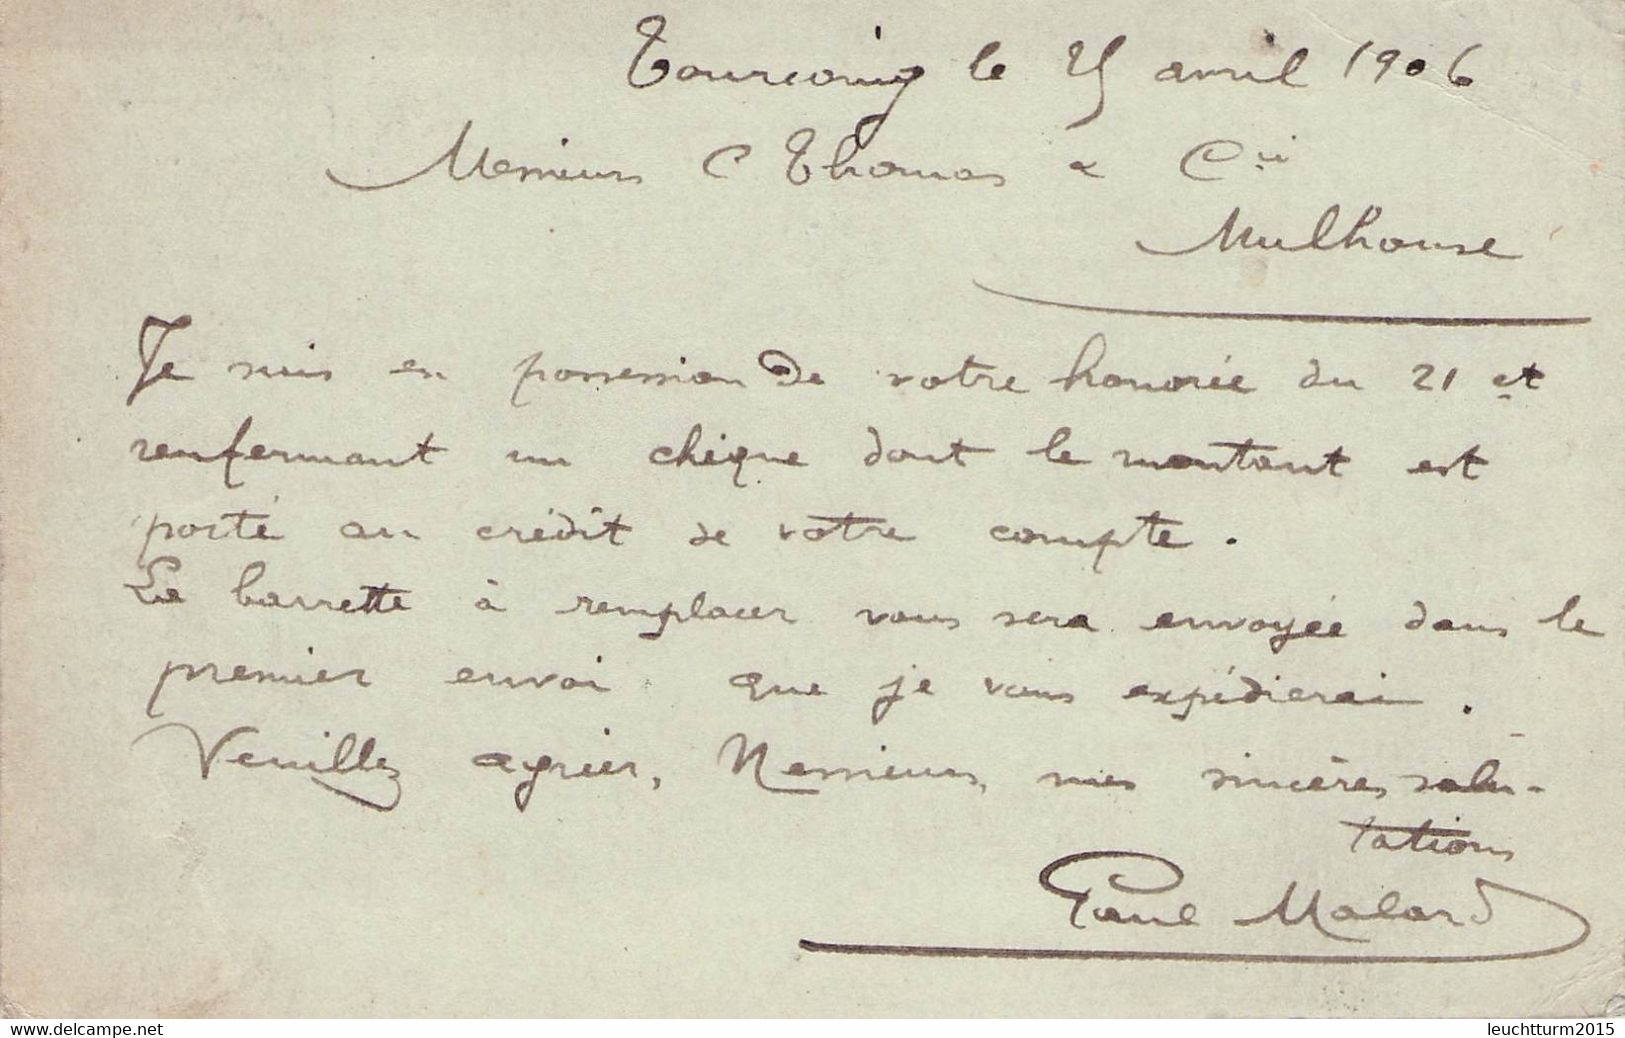 Tourcoing le 25 avril 1906
Messieurs C Thomas & Cie
Mulhouse
Je suis en possession de votre honorée du 21 ct
renfermant un chèque dont le montant est
porté au crédit de votre compte.
La barrette à remplacer vous sera envoyée dans le
premier envoi que je vous expédierai.
Veuillez agréer, Messieurs, mes sincères salu-
tations
Paul Malard
www.delcampe.net
leuchtturm2015